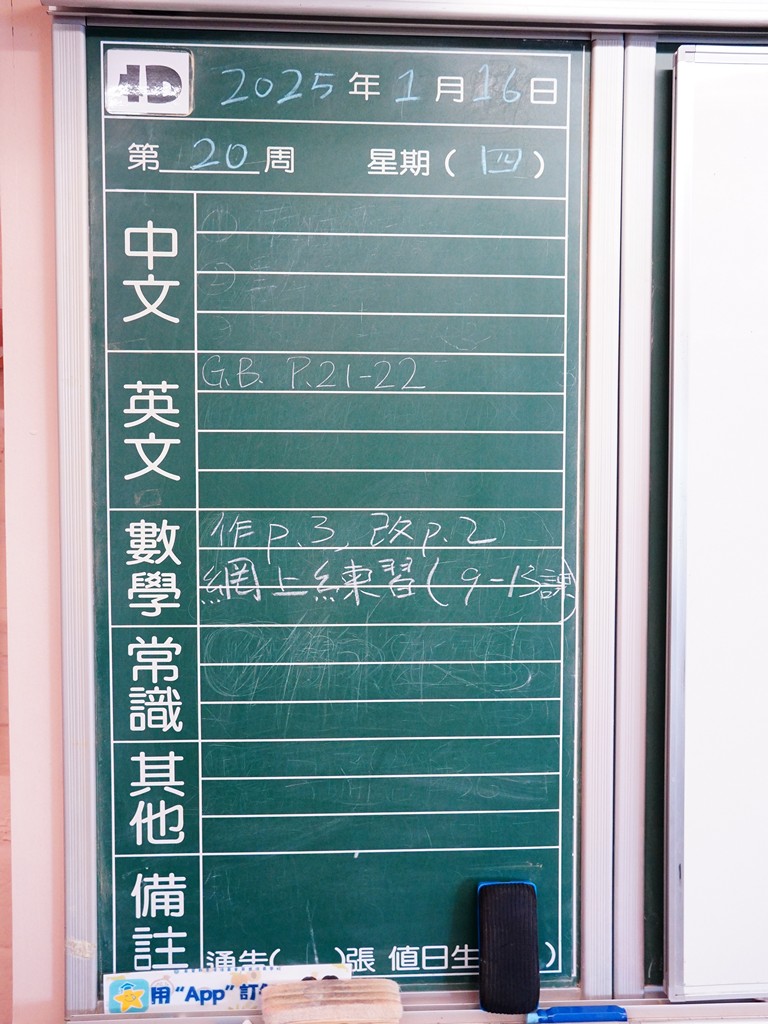 1D 2025年1月16日
第20周 星期(四)
中文
英文 G.B. P.21-22
數學 作p.3, 改p.2
網上練習(9-13課)
常識
其他
備註 通告( )張 值日生 )
用“App”訂